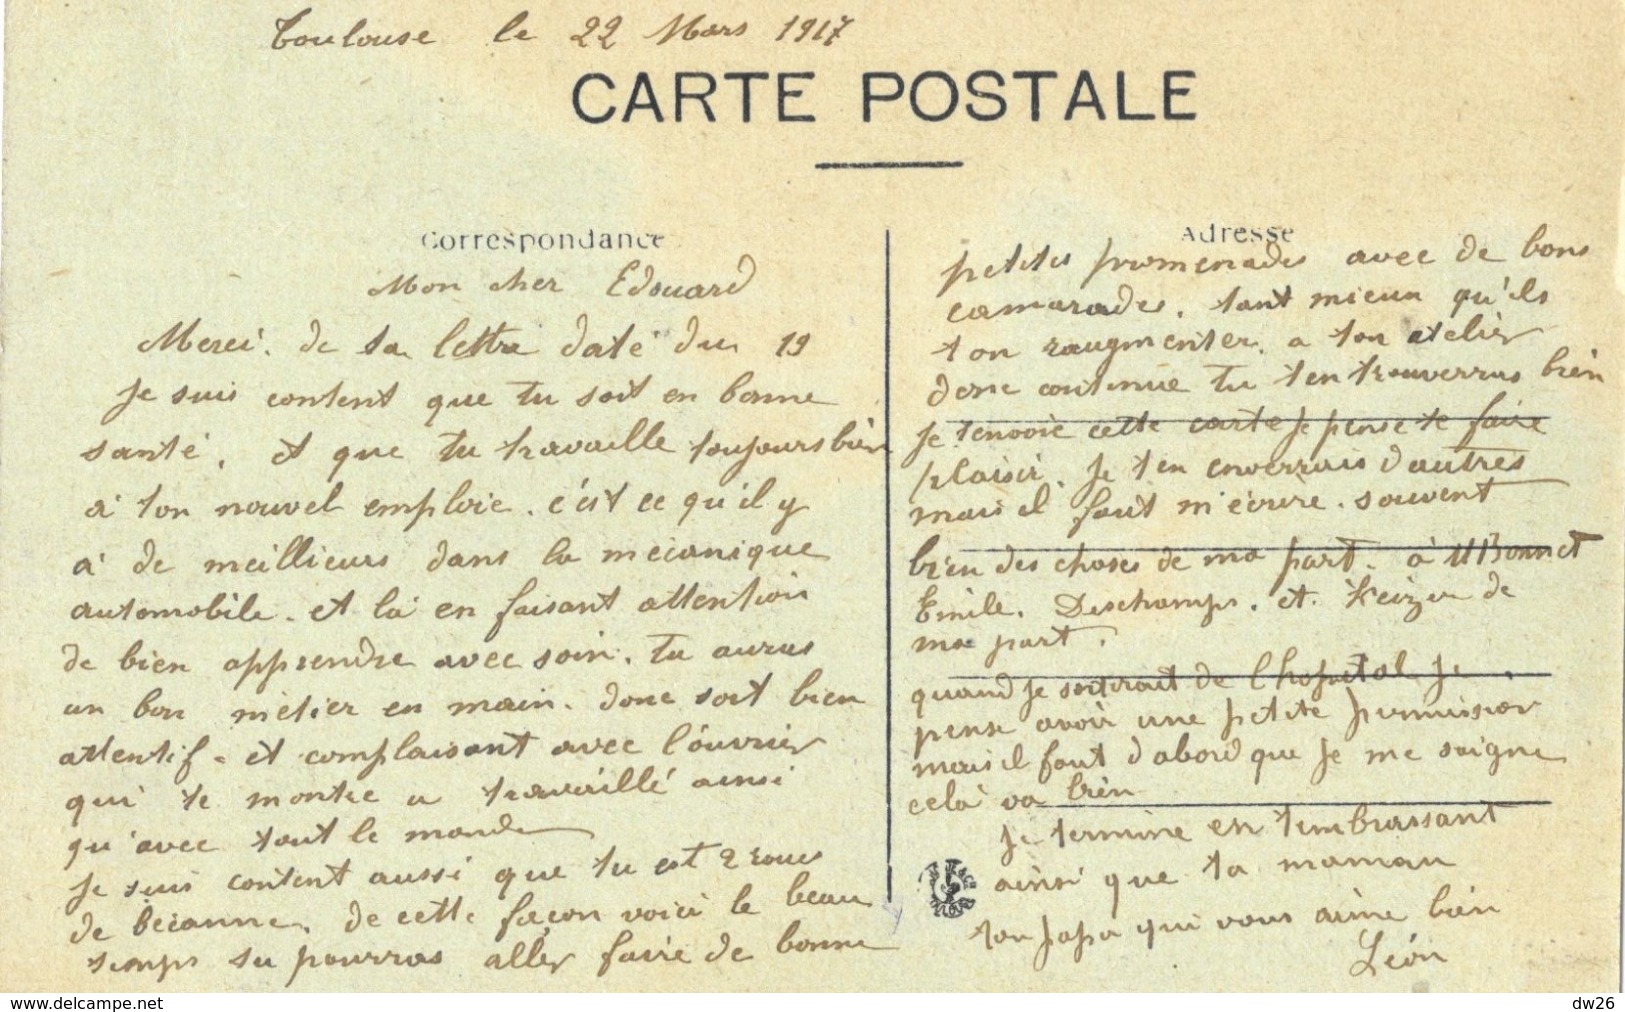 Toulouse le 22 Mars 1917
CARTE POSTALE
Correspondance
Mon cher Edouard
Merci. de ta lettre daté du 19
Je suis content que tu soit en bonne
santé, et que tu travaille toujours bien
a ton nouvel emploie. c'est ce qu'il y
a de meillieurs dans la mécanique
automobile. et là en faisant attention
de bien apprendre avec soin. tu auras
un bon métier en main. donc soit bien
attentif. et complaisant avec l'ouvrier
qui te montre a travaillé ainsi
qu'avec tout le monde
Je suis content aussi que tu est 2 roues
de becanne, de cette façon voici le beau
temps tu pourras aller faire de bonne
Adresse
petites promenades avec de bons
camarades. tant mieux qu'ils
t'on raugmenter. a ton atelier
donc continue tu t'en trouverras bien
Je t'envoie cette carte je pense te faire
plaisir. Je t'en enverrais d'autres
mais il faut m'écrire. souvent
bien des choses de ma part. à M Bonnet
Emile. Deschamps. et de
ma part.
quand je sortirait de l'hopital je
pense avoir une petite permission
mais il faut d'abord que je me soigne
cela va bien
Je termine en t'embrassant
ainsi que ta maman
ton papa qui vous aime bien
Léon
www.delcampe.net
dw26